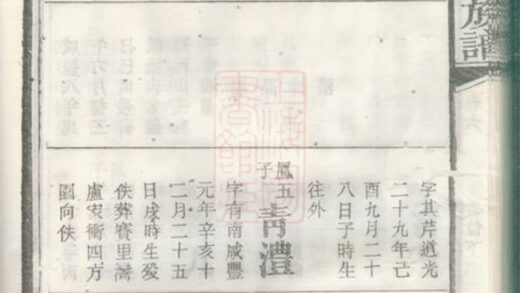 族譜
字其芹道光
二十九年己
酉九月二十
八日子時生
往外
鳳五子
靑澧
字有南咸豐
元年辛亥十
二月二十五
日戌時生殁
佚葬賽里灣
盧家衝四方
圖向佚